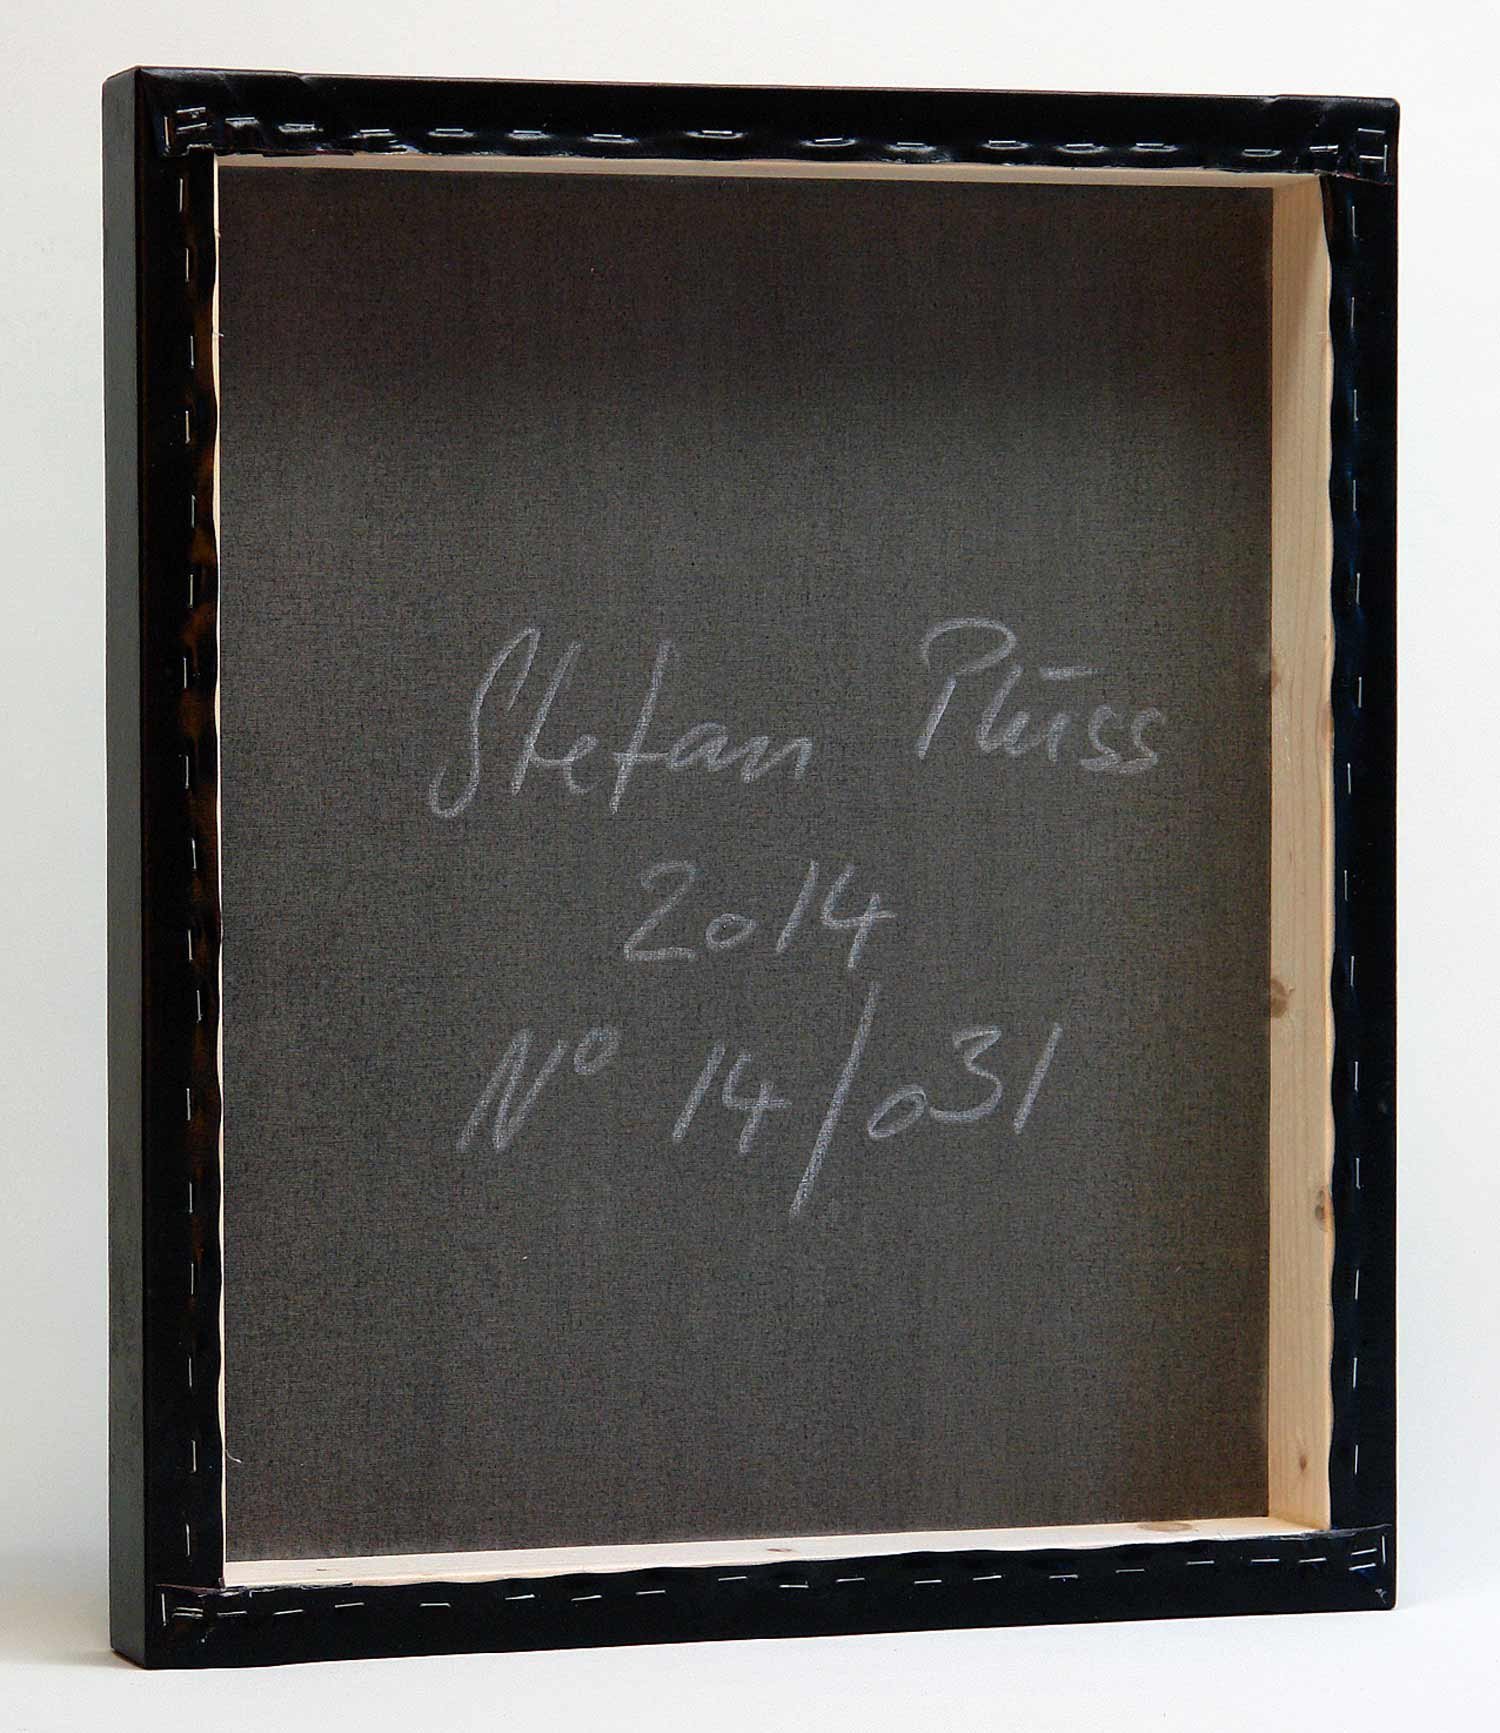 Stefan Plüss
2014
Nº 14/031